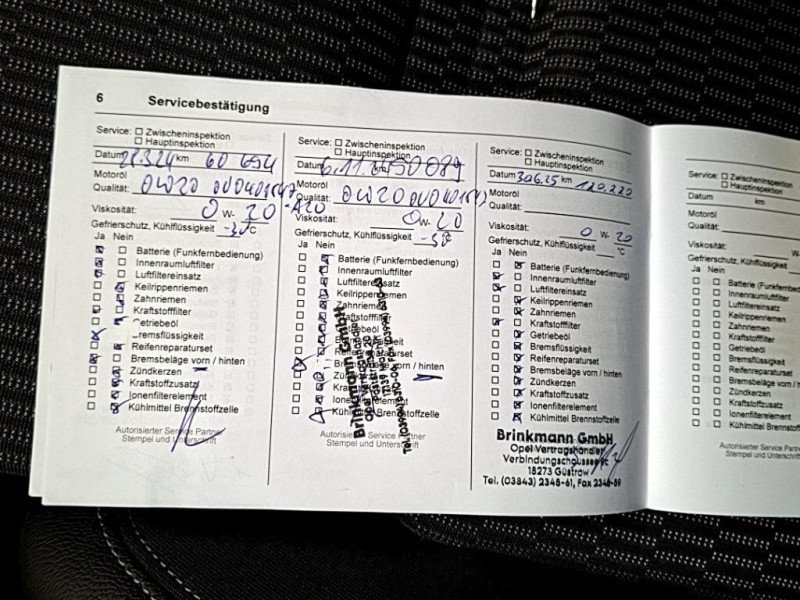 6 Servicebestätigung
Service: Zwischeninspektion
Hauptinspektion
Datum 28.3.24 km 60 694
Motoröl
Qualität: 0W20
Viskosität: 0 W- 20
Gefrierschutz, Kühlflüssigkeit -30 °C
Ja Nein
Batterie (Funkfernbedienung)
Innenraumluftfilter
Luftfiltereinsatz
Keilrippenriemen
Zahnriemen
Kraftstofffilter
Getriebeöl
Bremsflüssigkeit
Reifenreparaturset
Bremsbeläge vorn / hinten
Zündkerzen
Kraftstoffzusatz
Ionenfilterelement
Kühlmittel Brennstoffzelle
Autorisierter Service Partner
Stempel und Unterschrift
Service: Zwischeninspektion
Hauptinspektion
Datum 6.11.
Motoröl
Qualität: 0W20
Viskosität: 0 W- 20
Gefrierschutz, Kühlflüssigkeit
Ja Nein
Batterie (Funkfernbedienung)
Innenraumluftfilter
Luftfiltereinsatz
Keilrippenriemen
Zahnriemen
Kraftstofffilter
Bremsbeläge vorn / hinten
Ionenfilterelement
Kühlmittel Brennstoffzelle
Brinkmann GmbH
Autorisierter Service Partner
Stempel und Unterschrift
Service: Zwischeninspektion
Hauptinspektion
Datum 3.06.25 km 120.220
Motoröl
Qualität:
Viskosität: 0 W- 20
Gefrierschutz, Kühlflüssigkeit °C
Ja Nein
Batterie (Funkfernbedienung)
Innenraumluftfilter
Luftfiltereinsatz
Keilrippenriemen
Zahnriemen
Kraftstofffilter
Getriebeöl
Bremsflüssigkeit
Reifenreparaturset
Bremsbeläge vorn / hinten
Zündkerzen
Kraftstoffzusatz
Ionenfilterelement
Kühlmittel Brennstoffzelle
Brinkmann GmbH
Opel Vertragshändler
Verbindungschaussee
18273 Güstrow
Tel. (03843) 2348-61, Fax 2348-69
Service: Zwischeninspektion
Hauptinspektion
Datum km
Motoröl
Qualität:
Viskosität: W-
Gefrierschutz, Kühlflüssigkeit
Ja Nein
Batterie (Funkfernbedienung)
Innenraumluftfilter
Luftfiltereinsatz
Keilrippenriemen
Zahnriemen
Kraftstofffilter
Getriebeöl
Bremsflüssigkeit
Reifenreparaturset
Bremsbeläge vorn / hinten
Zündkerzen
Kraftstoffzusatz
Ionenfilterelement
Kühlmittel Brennstoffzelle
Autorisierter Service
Stempel und Unter